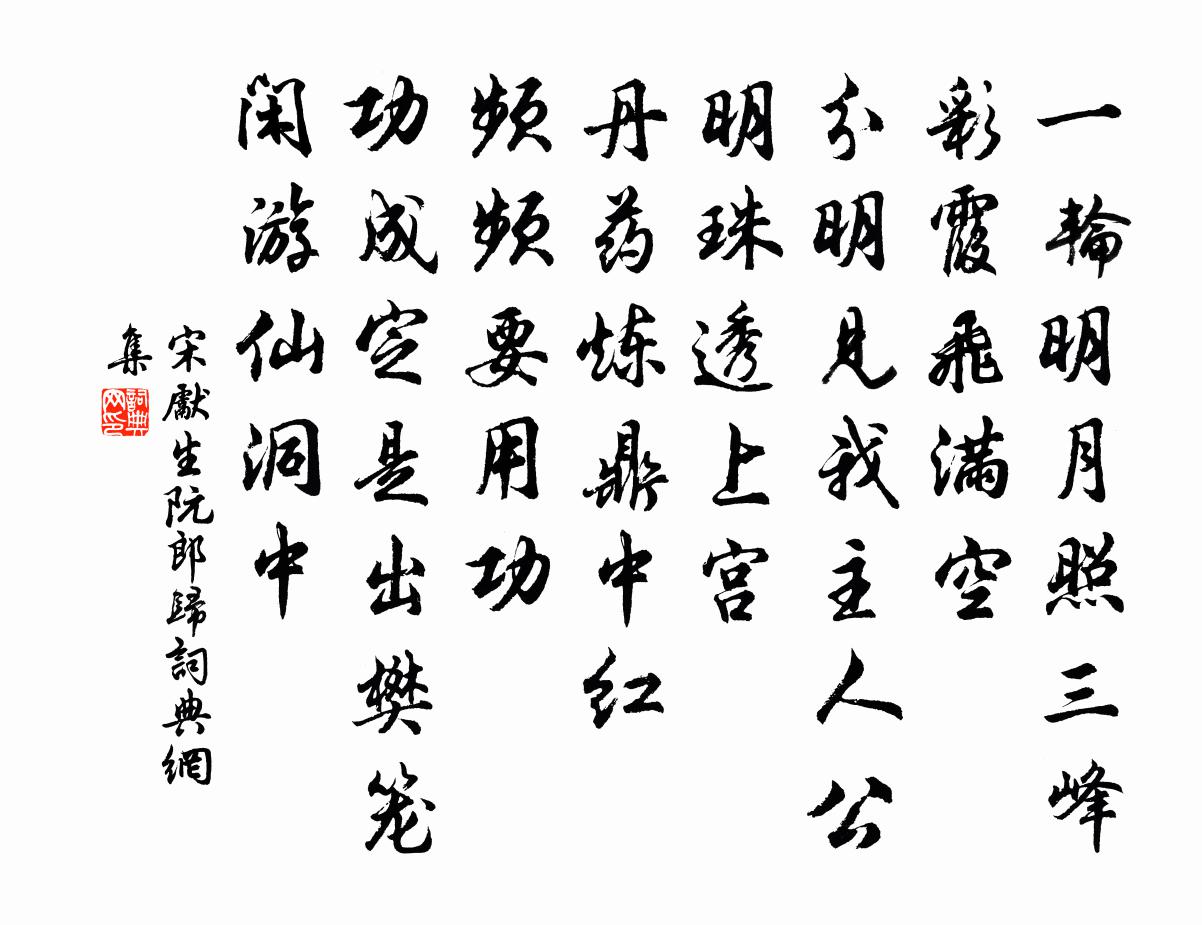 一輪明月照三峰
彩霞飛满空
分明見我主人公
明珠透上宫
丹药炼鼎中红
频频要用功
功成定是出樊笼
闲游仙洞中
宋獻生阮郎歸詞典網
集
詞典网印